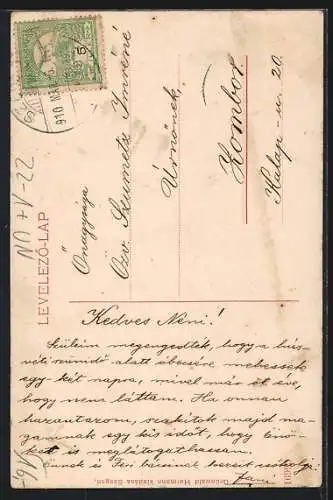 910 MÁR
5
22-1+UN
LEVELEZŐ-LAP
Önagysága
Özv. Szemetz Imréné
Úrnőnek,
Zombor
Kalap-u. 20.
Kedves Néni!
Szüleim megengedték, hogy a hús-
véti szünidő alatt Óbecsére mehessek
egy-két napra, mivel már öt éve,
hogy nem láttam. Ha onnan
hazautazom, szakítok majd ma-
gamnak egy kis időt, hogy Önö-
ket is meglátogathassam.
Önnek és Feri bácsinak kezeit csókolja:
Grünwald Hermann kiadása Szeged.